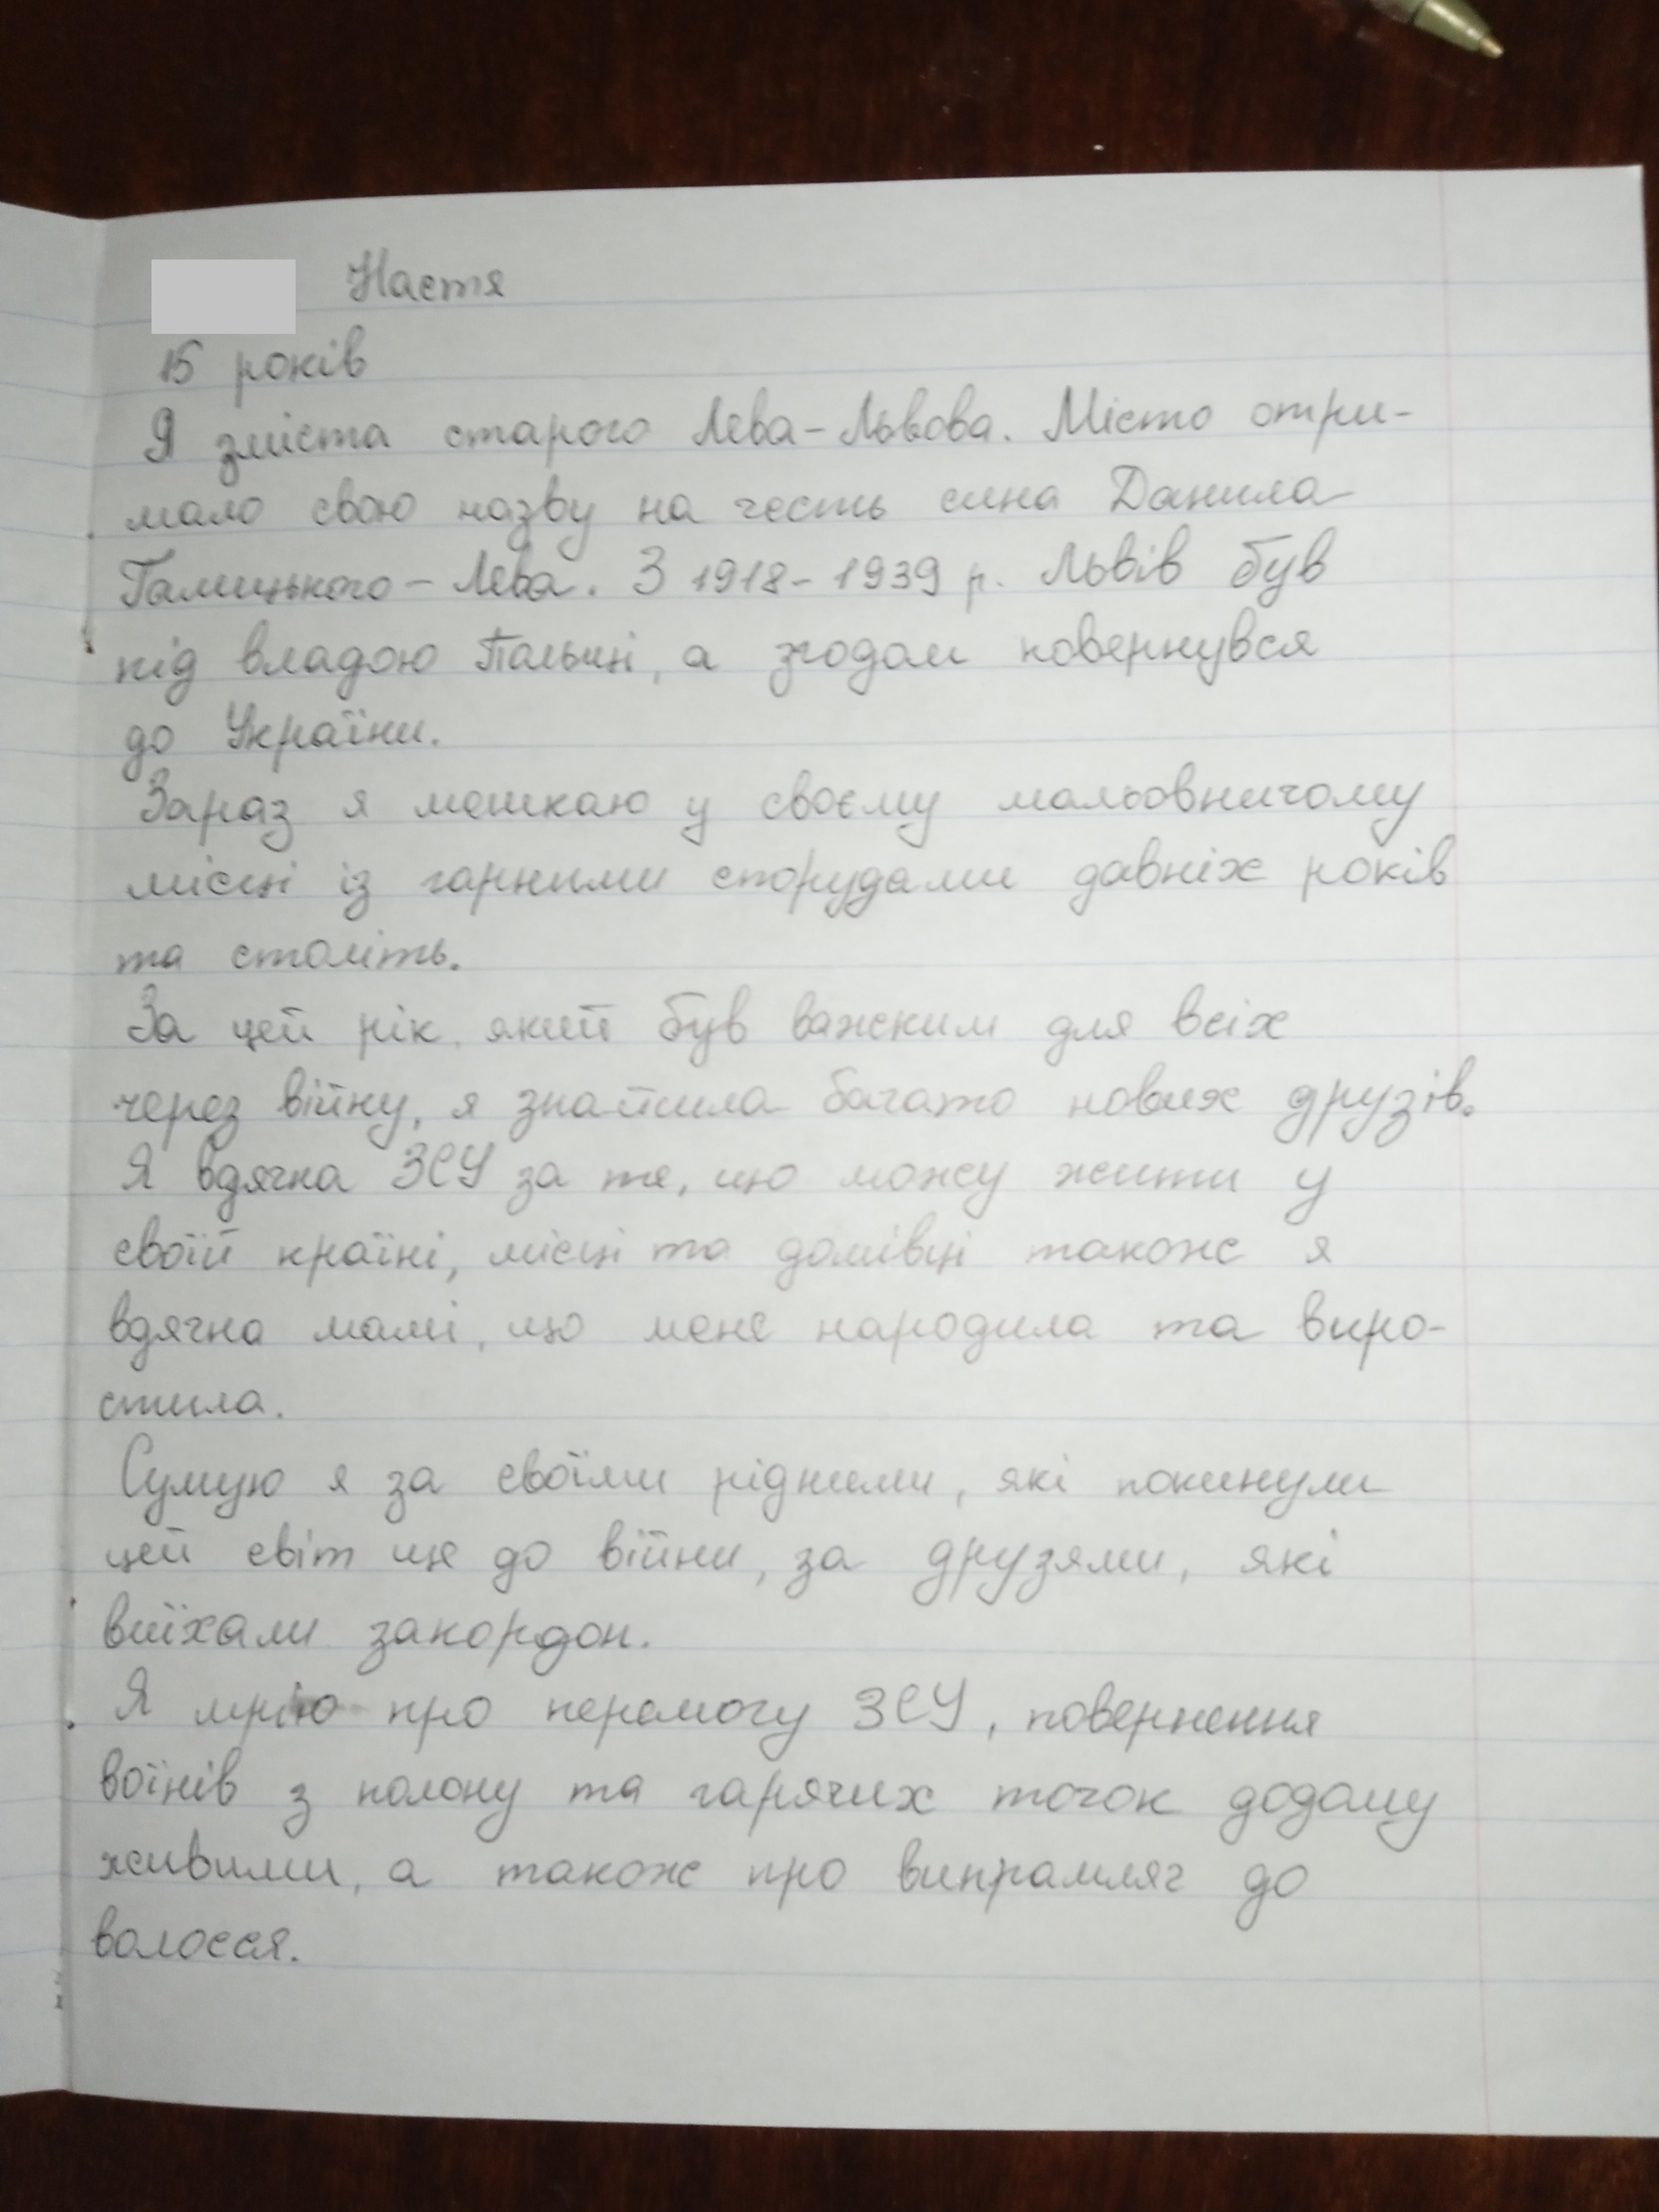 Настя
15 років
Я зміста старого Лева-Львова. Місто отри-
мало свою назву на честь сина Данила
Галицького - Лева. З 1918-1939 р. Львів був
під владою Польщі, а згодом повернувся
до України.
Зараз я мешкаю у своєму мальовничому
місці із гарними спорудами давніх років
та століть.
За цей рік, який був важким для всіх
через війну, я знайшла багато нових друзів.
Я вдячна ЗСУ за те, що можу жити у
своїй країні, місці та домівці також я
вдячна мамі, що мене народила та виро-
стила.
Сумую я за своїми рідними, які покинули
цей світ ще до війни, за друзями, які
виїхали закордон.
Я мрію про перемогу ЗСУ, повернення
воїнів з полону та гарячих точок додому
живими, а також про випрамляч до
волосся.